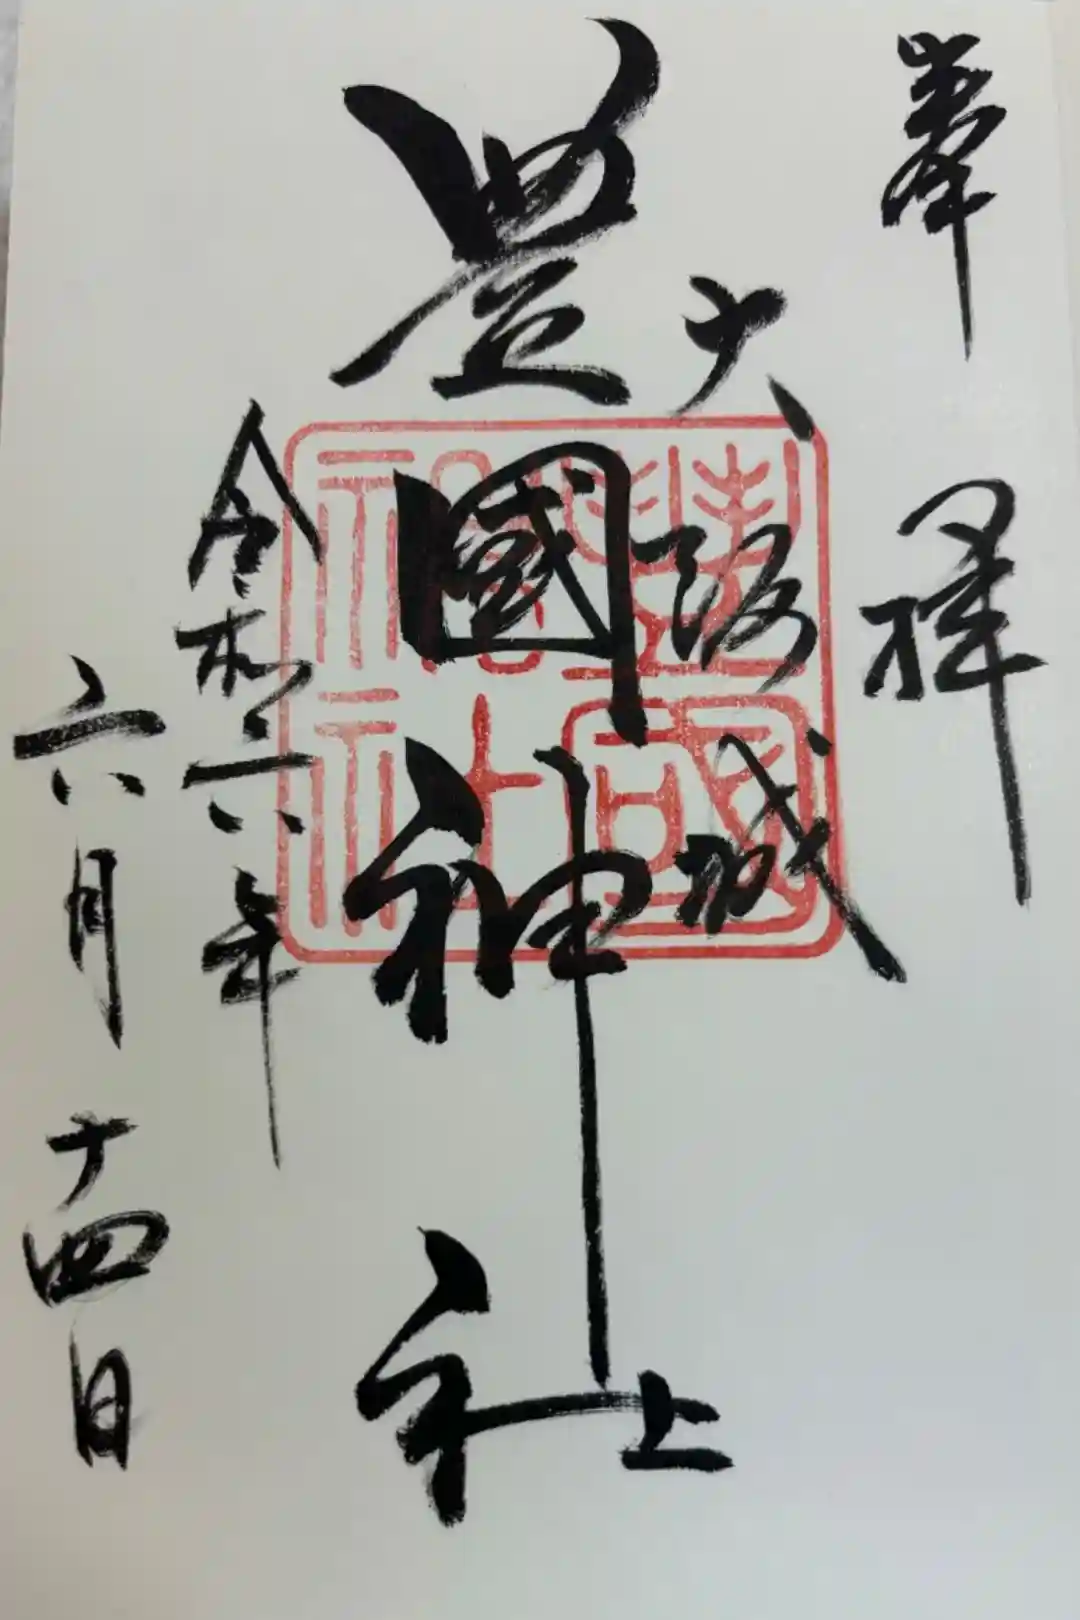 奉拝
大阪城
豊國神社
令和六年
六月十四日
豊國
神社